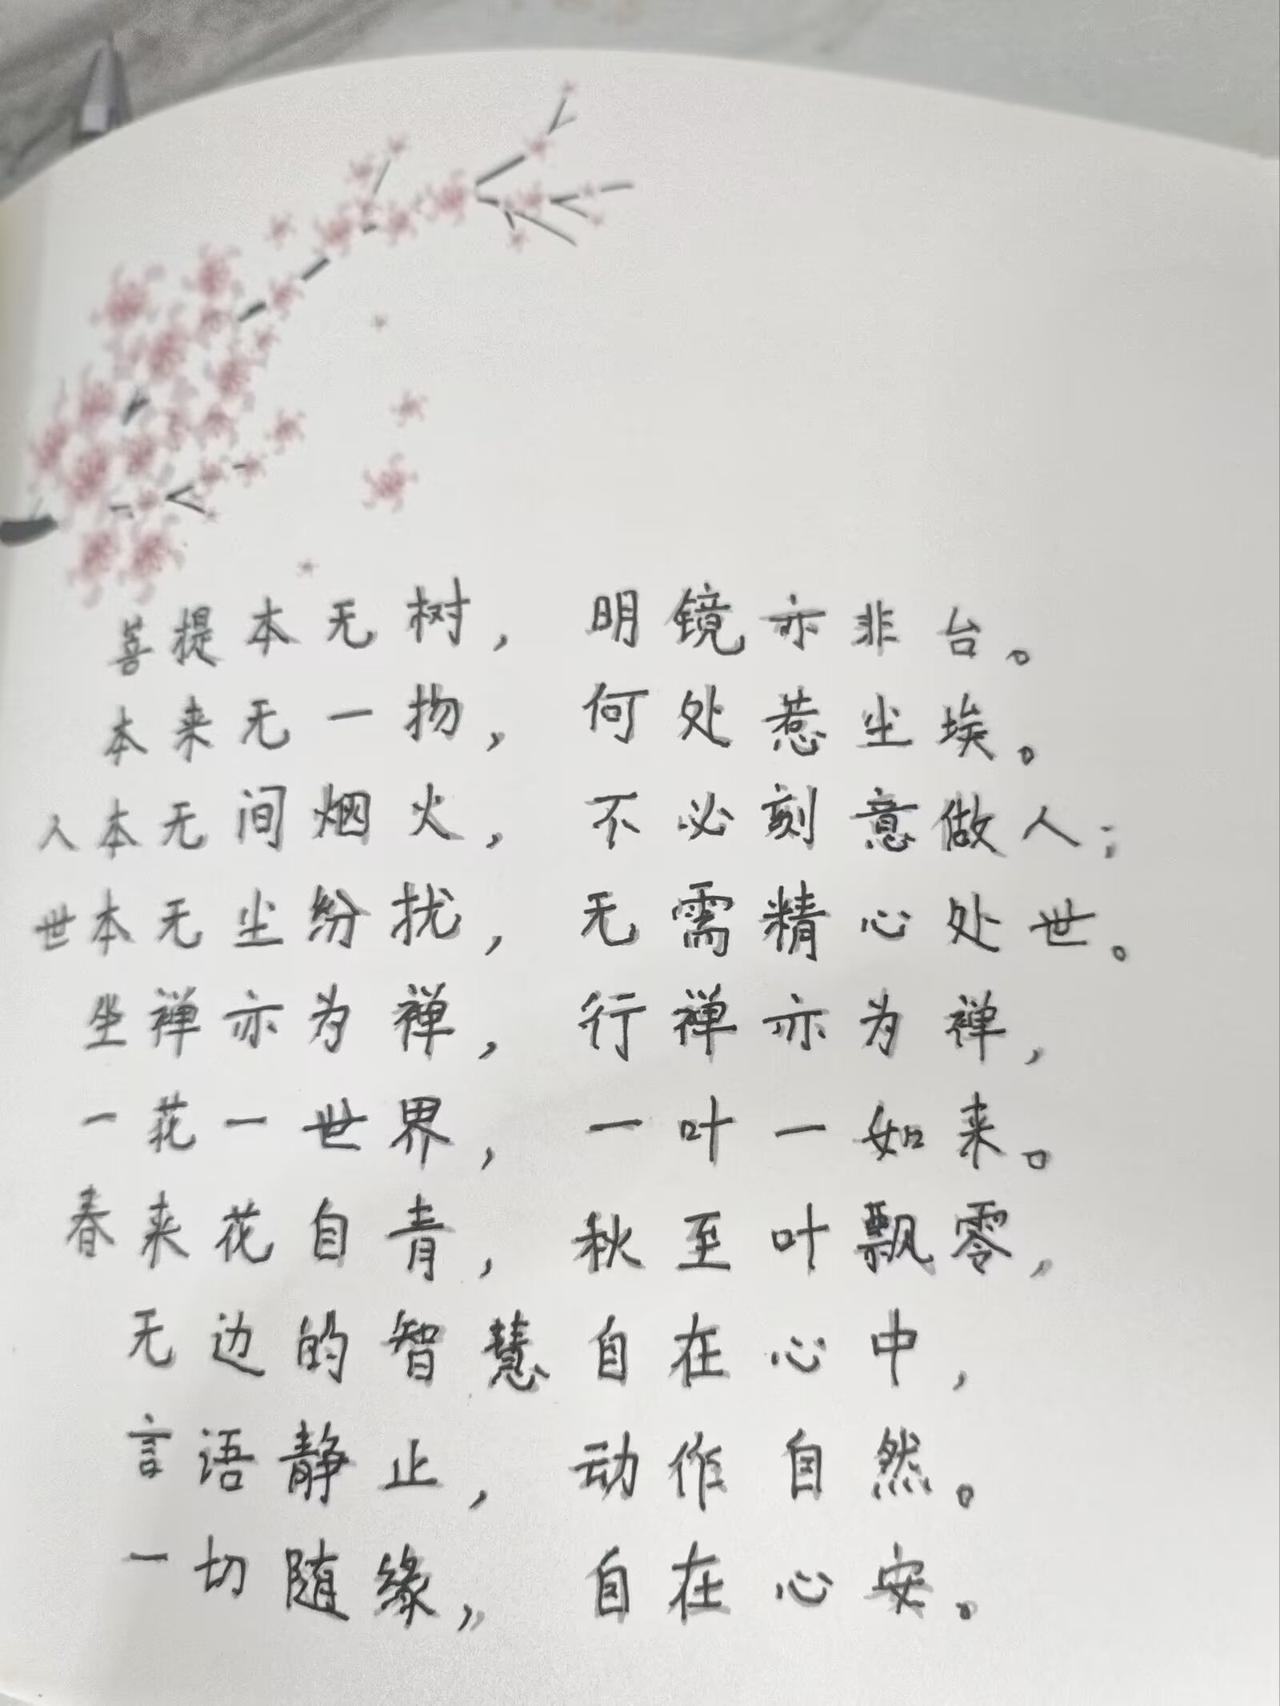 菩提本无树，明镜亦非台。
本来无一物，何处惹尘埃。
人本无间烟火，不必刻意做人；
世本无尘纷扰，无需精心处世。
坐禅亦为禅，行禅亦为禅，
一花一世界，一叶一如来。
春来花自青，秋至叶飘零，
无边的智慧自在心中，
言语静止，动作自然。
一切随缘，自在心安。